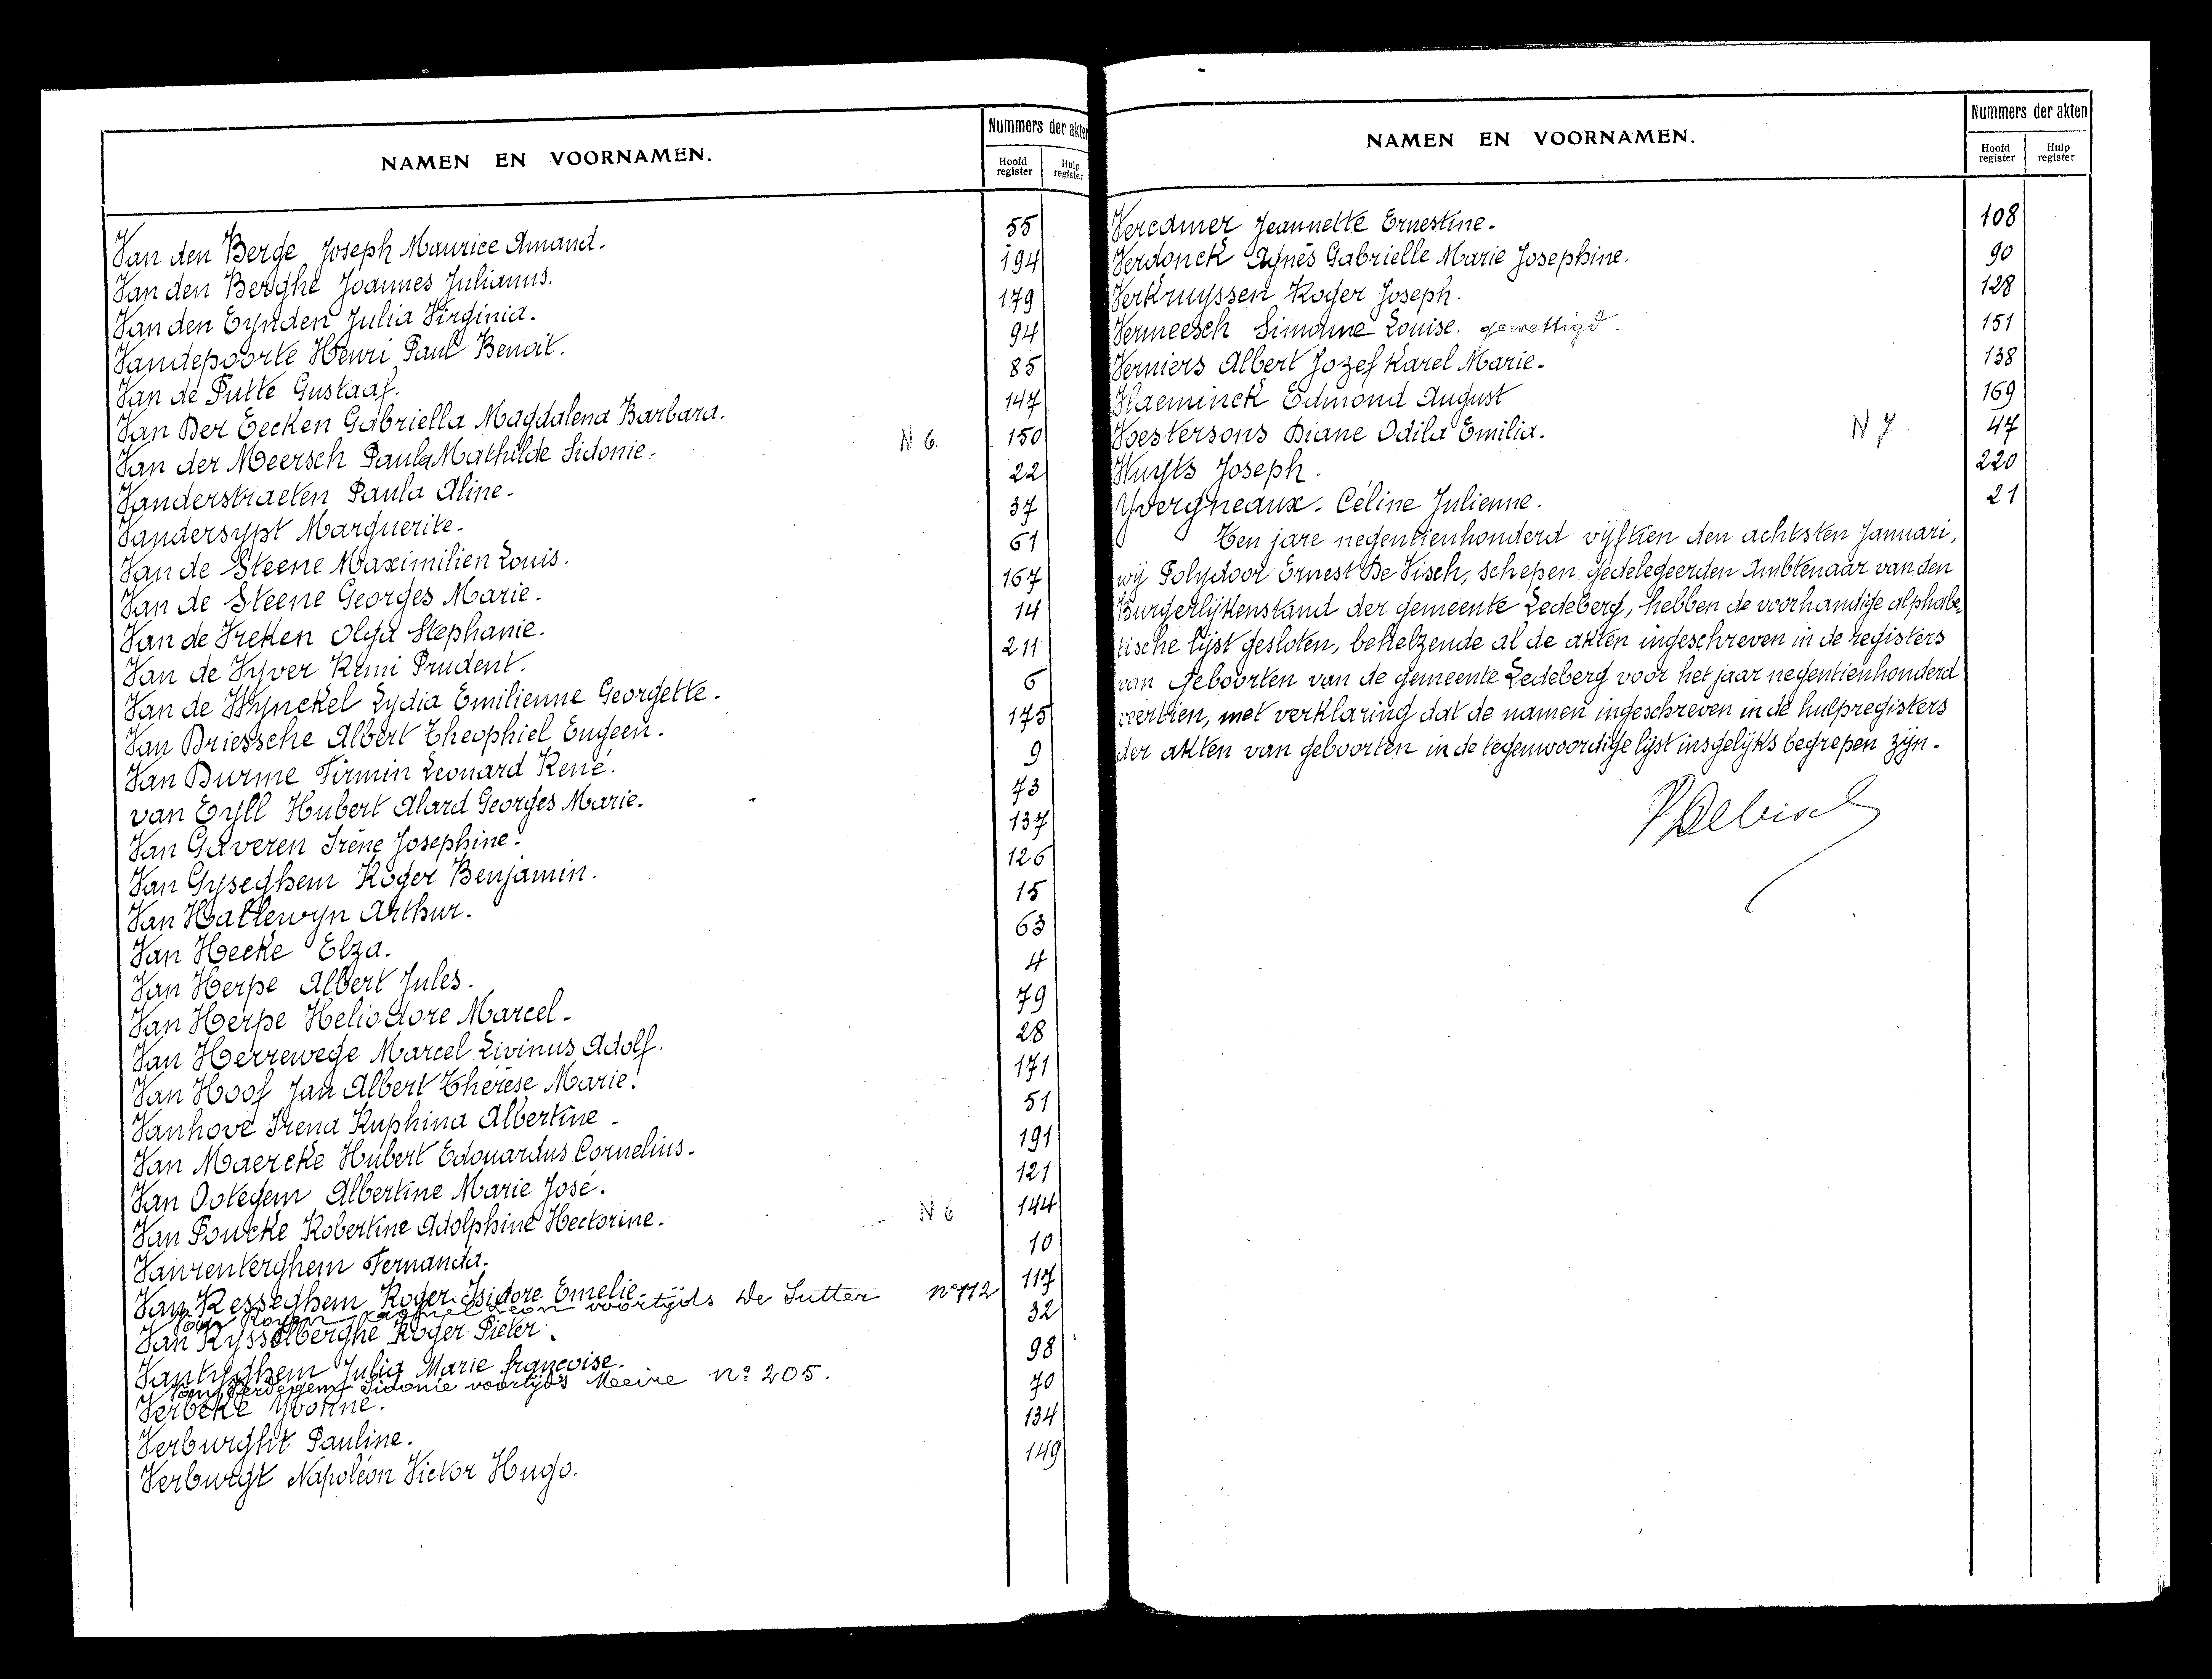 NAMEN EN VOORNAMEN.
Nummers der akten
Hoofd register
Hulp register
Van den Berge Joseph Maurice Amand. 55
Van den Berghe Joannes Julianus. 194
Van den Eynden Julia Virginia. 179
Vandepoorte Henri Paul Benoit. 94
Van de Putte Gustaaf. 85
Van Der Eecken Gabriella Magdalena Barbara. 147
Van der Meersch Paula Mathilde Sidonie. N 6. 150
Vanderstraeten Paula Aline. 22
Vandersypt Marguerite. 37
Van de Steene Maximilien Louis. 61
Van de Steene Georges Marie. 167
Van de Vreken Olga Stephanie. 14
Van de Vyver Remi Prudent. 211
Van de Wynckel Lydia Emilienne Georgette. 6
Van Driessche Albert Theophiel Eugeen. 175
Van Durme Firmin Leonard René. 9
van Eyll Hubert Alard Georges Marie. 73
Van Gaveren Irène Josephine. 137
Van Gyseghem Roger Benjamin. 126
Van Hallewyn Arthur. 15
Van Hecke Elza. 63
Van Herpe Albert Jules. 4
Van Herpe Heliodore Marcel. 79
Van Herrewege Marcel Livinus Adolf. 28
Van Hoof Jan Albert Thérèse Marie. 171
Vanhove Irena Ruphina Albertine. 51
Van Maercke Hubert Edouardus Cornelius. 191
Van Ootegem Albertine Marie José. 121
Van Poucke Robertine Adolphine Hectorine. N 6 144
Vanrenterghem Fernanda. 10
Van Resseghem Roger Isidore Emelie. 117
Van Royen Leon voortijds De Sutter nº 112
Van Rysselberghe Roger Pieter. 32
Vantyghem Julia Marie françoise. 98
Sidonie voortijds Meire nº 205.
Verbeke Yvonne. 70
Verburght Pauline. 134
Verburgt Napoléon Victor Hugo. 149
NAMEN EN VOORNAMEN.
Nummers der akten
Hoofd register
Hulp register
Vercamer Jeannette Ernestine. 108
Verdonck Agnès Gabrielle Marie Josephine. 90
Verkruyssen Roger Joseph. 128
Vermeesch Simonne Louise. gewettigd. 151
Verniers Albert Jozef Karel Marie. 138
Vlaeminck Edmond August 169
Voestersons Diane Odila Emilia. N 7. 47
Wuyts Joseph. 220
Yvergneaux. Céline Julienne. 21
Ten jare negentienhonderd vijftien den achtsten Januari,
wij Polydoor Ernest De Visch, schepen gedelegeerden Ambtenaar van den
Burgerlijkenstand der gemeente Ledeberg, hebben de voorhandige alphabe=
tische lijst gesloten, behelzende al de akten ingeschreven in de registers
van Geboorten van de gemeente Ledeberg voor het jaar negentienhonderd
veertien, met verklaring dat de namen ingeschreven in de hulpregisters
der akten van geboorten in de tegenwoordige lijst insgelijks begrepen zijn.
P DeVisch